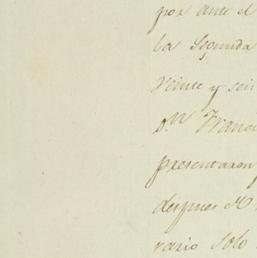 por ante el
la Segunda
veinte y seis
Dn Franci
presentaron
despues
rario solo